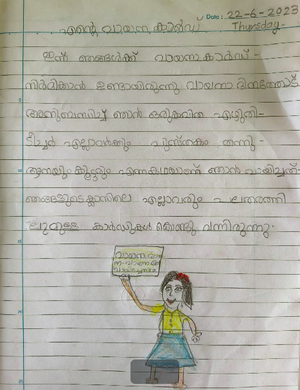 Date : 22-6-2023
Thursday
എന്റെ വായനകാർഡ്
ഇന്ന് ഞങ്ങൾക്ക് വായനാകാർഡ് -
നിർമിക്കാൻ ഉണ്ടായിരുന്നു വായനാ ദിനത്തോട്
അനുബന്ധിച്ച് ഞാൻ ഒരുകവിത എഴുതി-
ടീച്ചർ എല്ലാവർക്കും പുസ്തകം തന്നു -
ആനയും കുട്ടും എന്നകഥയാണ് ഞാൻ വായിച്ചത്
ഞങ്ങളുടെക്ലാസിലെ എല്ലാവരും പലതരത്തി
ലുമുള്ള കാർഡുകൾ കൊണ്ടു വന്നിരുന്നു -